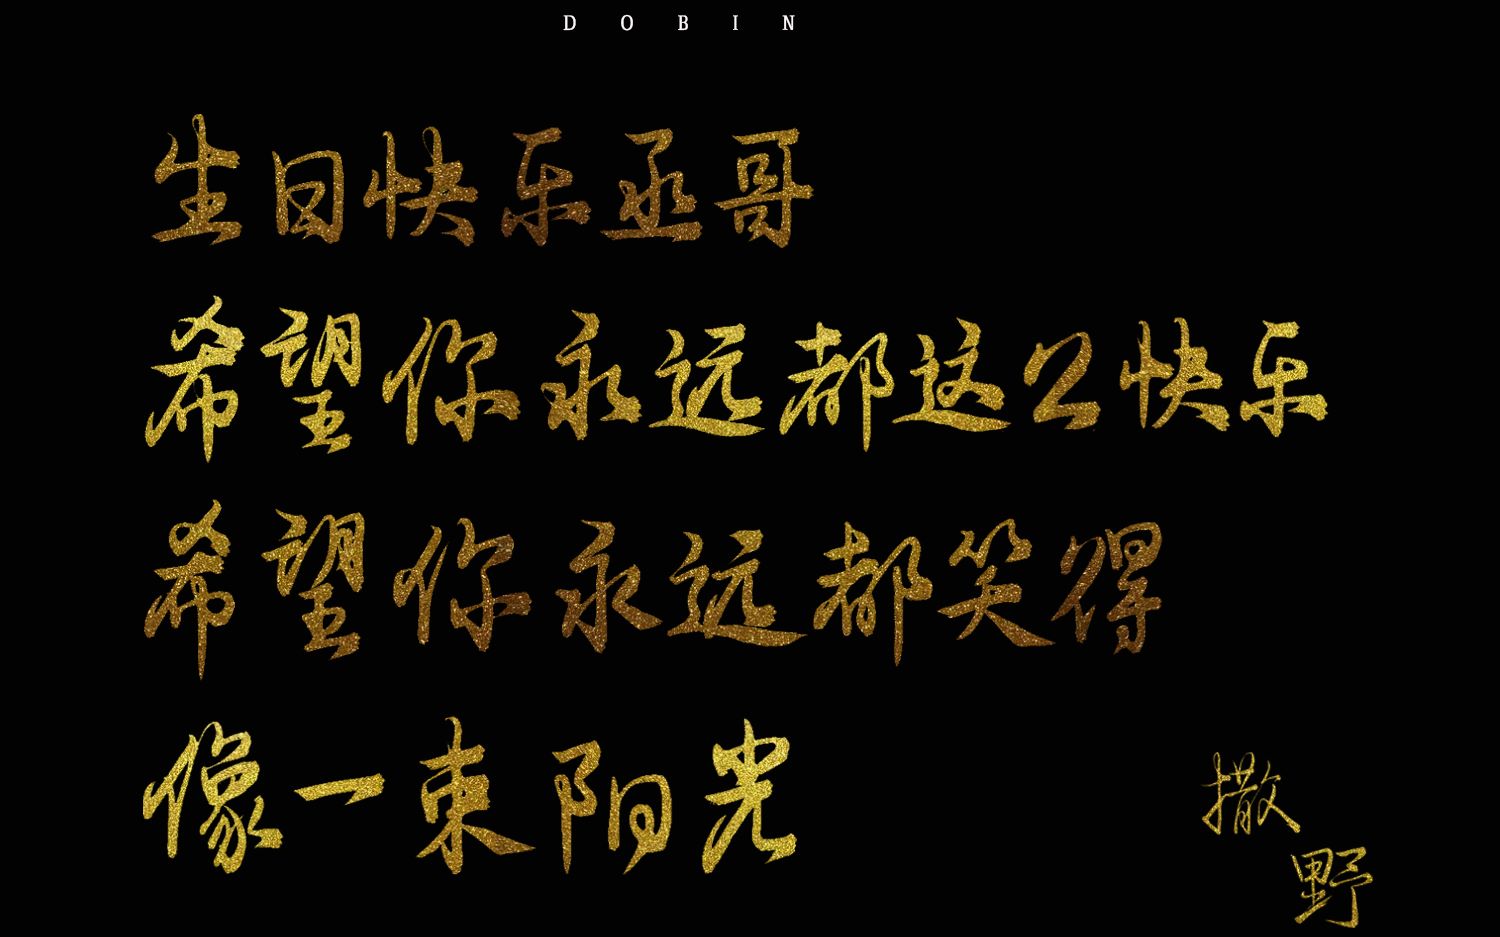 DOBIN
生日快乐丞哥
希望你永远都这么快乐
希望你永远都笑得
像一束阳光
撒
野